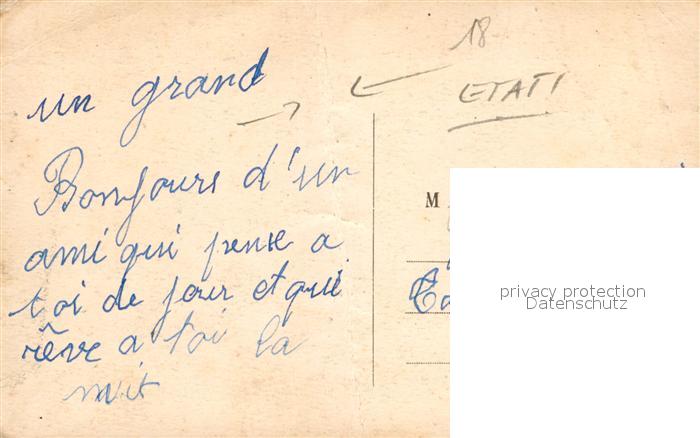 18
ETATI
un grand
Bonjours d'un
ami qui pense a
toi de jour et qui
rêve a toi la
nuit
M
privacy protection
Datenschutz